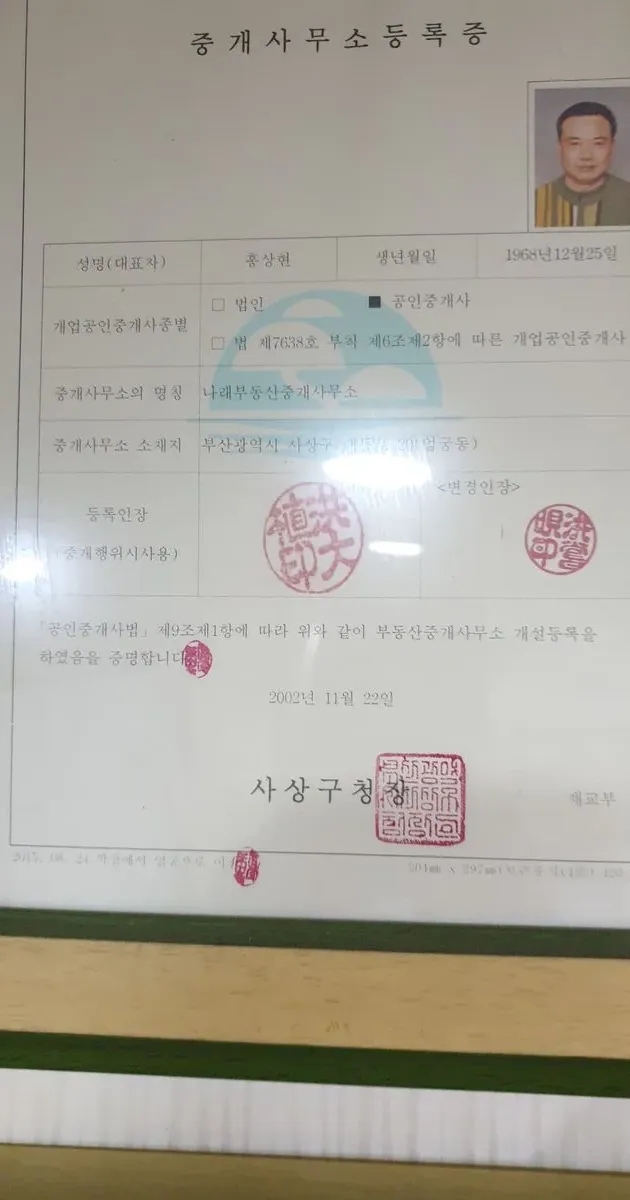 중개사무소등록증
성명(대표자) 홍상현 생년월일 1968년12월25일
개업공인중개사종별 □ 법인 ■ 공인중개사
□ 법 제7638호 부칙 제6조제2항에 따른 개업공인중개사
중개사무소의 명칭 나래부동산중개사무소
중개사무소 소재지 부산광역시 사상구 엄궁동)
등록인장
(중개행위시사용)
<변경인장>
「공인중개사법」 제9조제1항에 따라 위와 같이 부동산중개사무소 개설등록을
하였음을 증명합니다
2002년 11월 22일
사상구청장
재교부